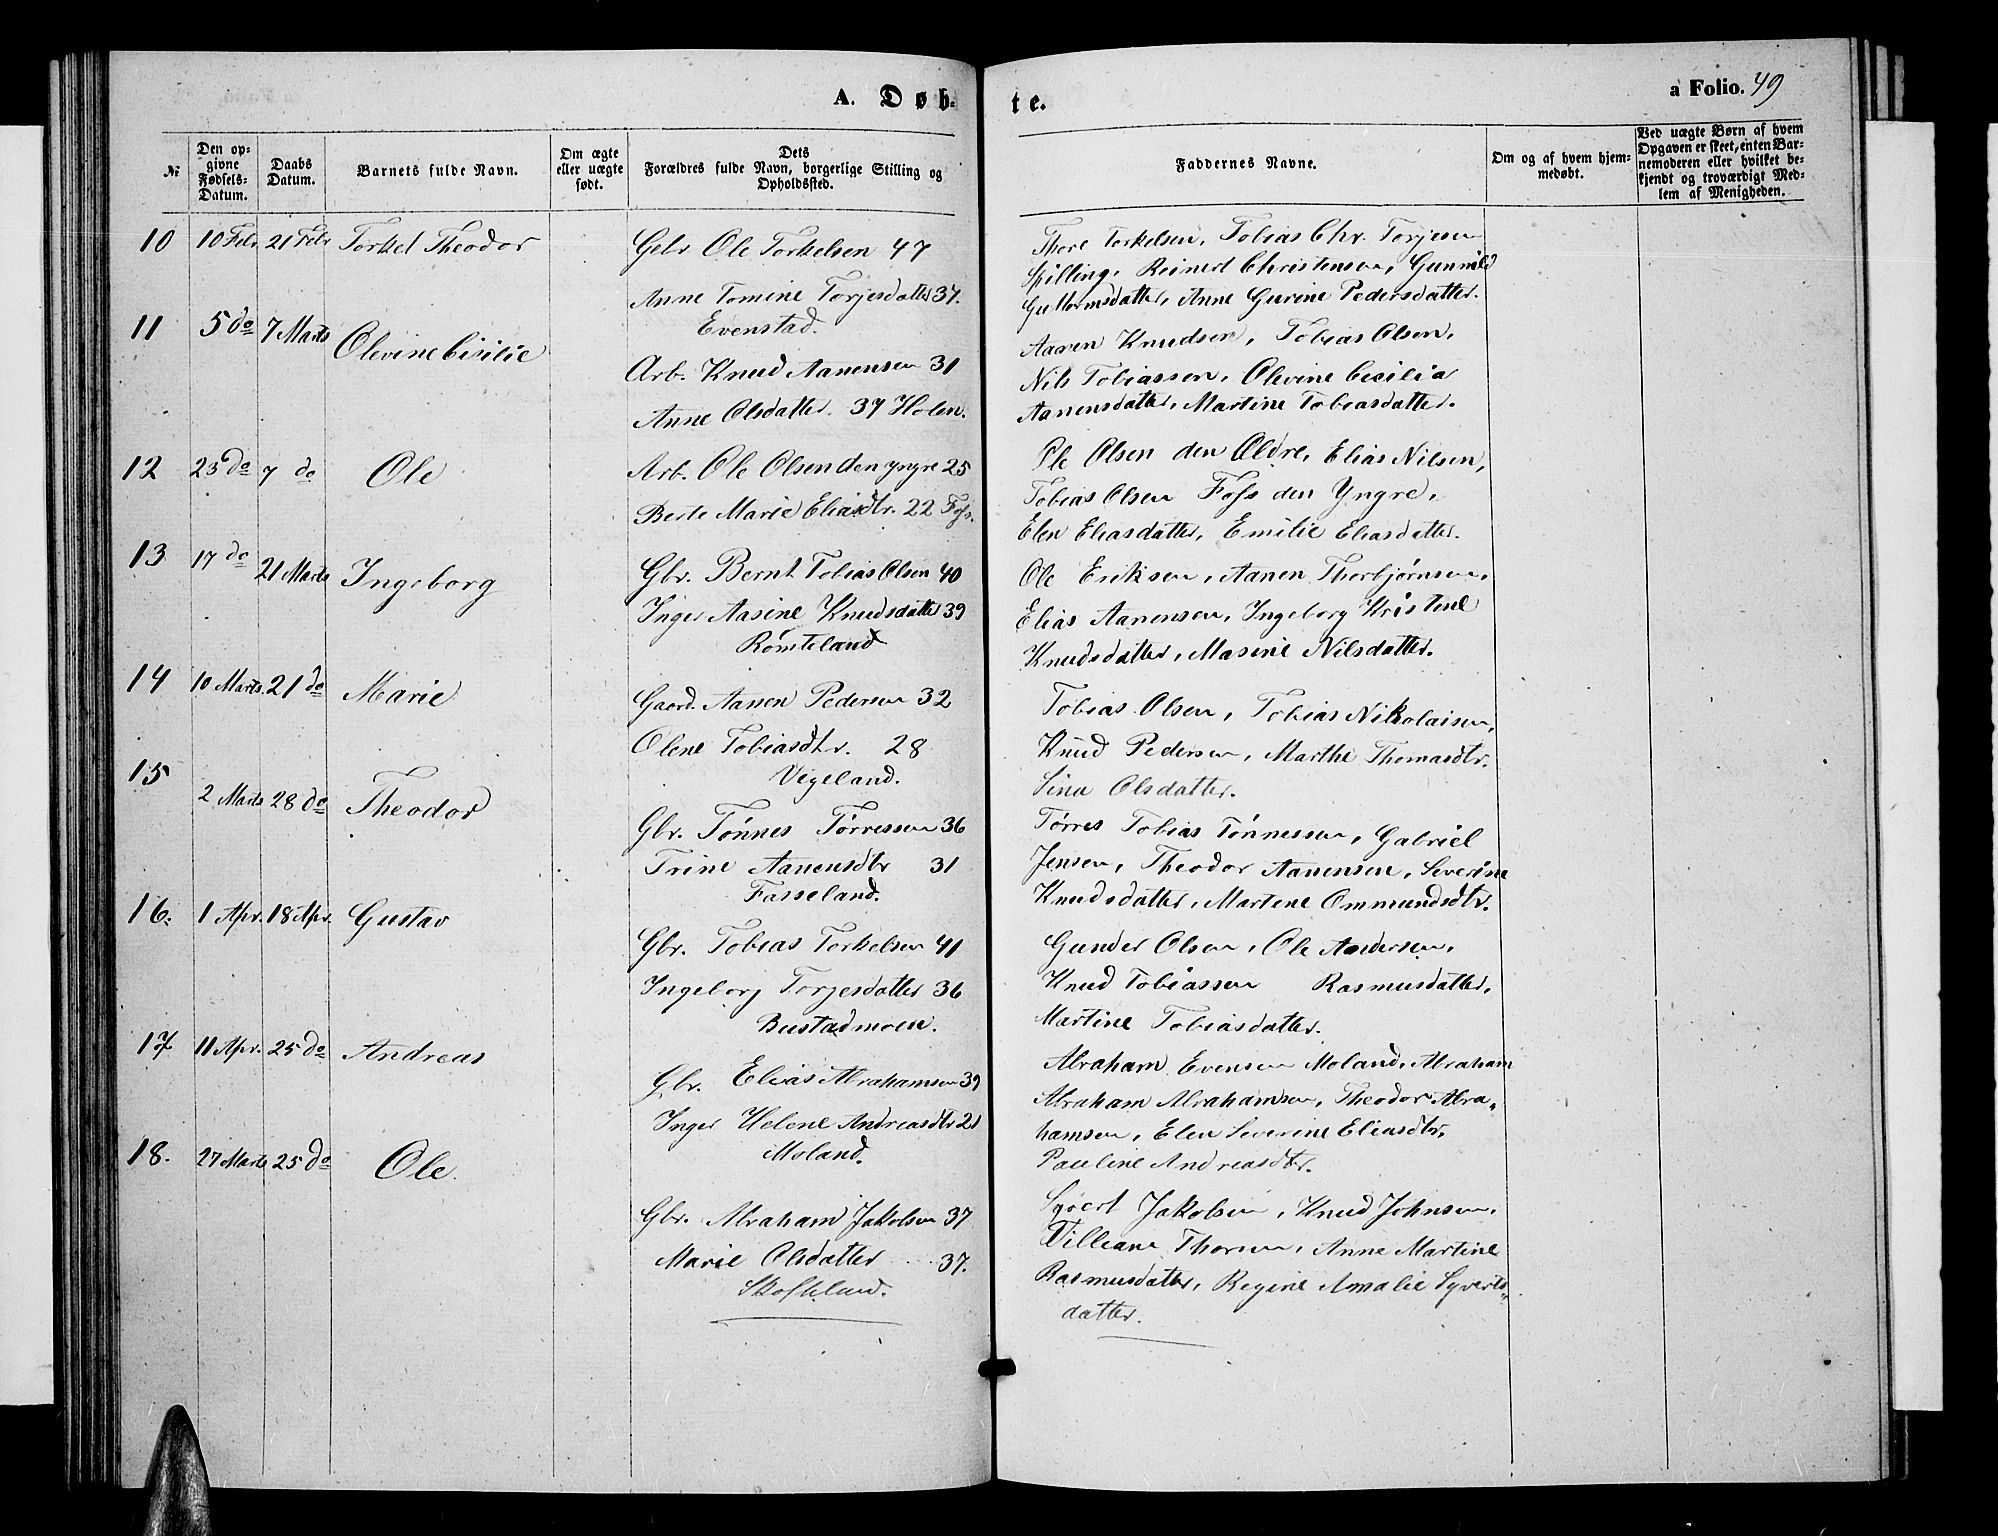 A. Døb-
te.
a Folio. 49
№
Den op-
givne
Fødsels-
Datum.
Daabs
Datum.
Barnets fulde Navn.
Om ægte
eller uægte
født.
Dets
Forældres fulde Navn, borgerlige Stilling og
Opholdssted.
Faddernes Navne.
Om og af hvem hjem-
medøbt.
Ved uægte Børn af hvem
Opgaven er skeet, enten Bar-
nemoderen eller hvilket be-
kjendt og troværdigt Med-
lem af Menigheden.
10 10 Febr 21 Febr Torkel Theodor
Gbr Ole Torkelsen 47
Anne Tomine Torjesdatter 37.
Evenstad.
Thore Torkelsen, Tobias Chr. Torjesen
Spilling, Reinert Christensen, Gunnild
Guttormsdatter, Anne Gurine Pedersdatter.
11 5 do 7 Marts Olevine Cisilie
Arb. Knud Aanensen 31
Anne Olsdatter. 37 Holen.
Aanen Knudsen, Tobias Olsen,
Nils Tobiassen, Olevine Cecilia
Aanensdatter, Martine Tobiasdatter.
12 23 do 7 do Ole
Arb. Ole Olsen den yngre 25
Berte Marie Eliasdtr. 22 Foss.
Ole Olsen den Ældre, Elias Nilsen,
Tobias Olsen Foss den Yngre,
Elen Eliasdatter, Emilie Eliasdatter.
13 17 do 21 Marts Ingeborg
Gbr. Bernt Tobias Olsen 40
Inger Aasine Knudsdatter 39
Rømteland
Ole Eriksen, Aanen Thorbjørnsen,
Elias Aanensen, Ingeborg Kristene
Knudsdatter, Masine Nilsdatter.
14 10 Marts. 21 do Marie
Gaard. Aanen Pedersen 32
Olene Tobiasdtr. 28
Vigeland.
Tobias Olsen, Tobias Nikolaisen,
Knud Pedersen, Marthe Thomasdtr.
Sina Olsdatter.
15 2 Marts 28 do Theodor
Gbr. Tønnes Tørressen 36
Trine Aanensdtr 31
Fasseland.
Tørres Tobias Tønnessen, Gabriel
Jensen, Theodor Aanensen, Severine
Knudsdatter, Martene Ommundsdtr.
16. 1 Apr. 18 Apr. Gustav
Gbr. Tobias Torkelsen 41
Ingeborj Torjesdatter 36
Bustadmoen.
Gunder Olsen, Ole Andersen,
Knud Tobiassen Rasmusdatter,
Martine Tobiasdatter.
17 11 Apr. 25 do Andreas
Gbr. Elias Abrahamsen 39
Inger Helene Andreasdtr 21
Moland.
Abraham Evensen Moland, Abraham
Abraham Abrahamsen, Theodor Abra„
hamsen, Elen Severine Eliasdtr,
Pauline Andreasdtr.
18. 27 Marts 25 do Ole.
Gbr. Abraham Jakobsen 37
Marie Olsdatter 37.
Skofteland.
Syvert Jakobsen, Knud Johnsen,
Villiam Thorsen, Anne Martine
Rasmusdatter, Regine Amalie Syverts„
datter.